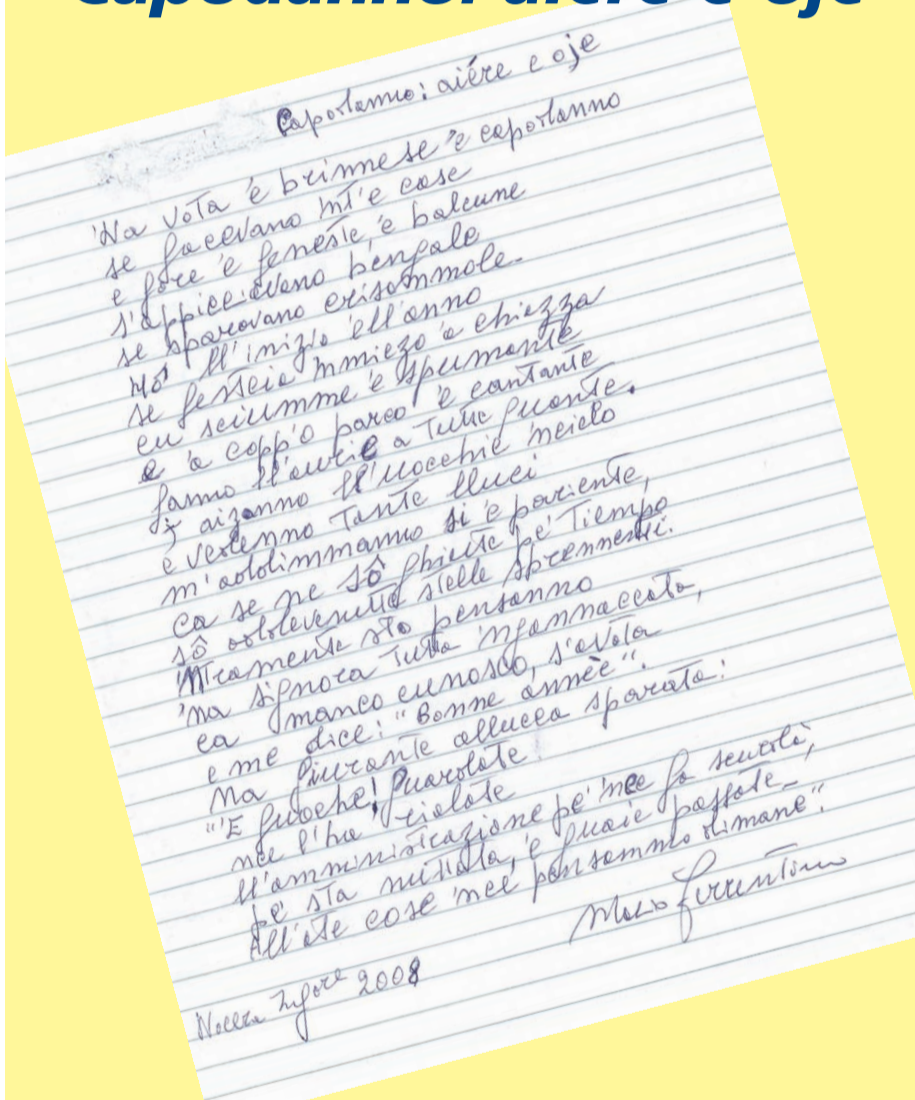 Capodanno: aiére e oje
Capodanno: aiére e oje
'Na vota 'e brinnese 'e capodanno
se facevano int'e case
e fore 'e feneste, 'e balcune
s'appicciavano bengale
se sparavano crisommole.
Mo' ll'inizio 'ell'anno
se festeia mmiezo 'a chiazza
cu sciumme 'e spumante
e 'a copp'o parco 'e cantante
fanno ll'aurie a tutte quante.
I' aizanno ll'uocchie 'ncielo
e vedenno tante lluci
m'addimmanno si 'e pariente,
ca se ne sô ghiute pe' tiempo
sô addeventate stelle sprennenti.
'Ntramente sto penzanno
'na signora tutta 'ngannaccata,
ca manco cunosco, s'avota
e me dice: "Bonne année".
Na guurante allucca sparata:
"'E fuoche! Guardate
nce l'ha rialate
ll'amministrazione pe' 'nce fa scurdà,
pe' sta nuttata, 'e guaie passate_
All'ate cose 'nce penzammo dimane".
Mario Sorrentino
Nocera Inf.ore 2008